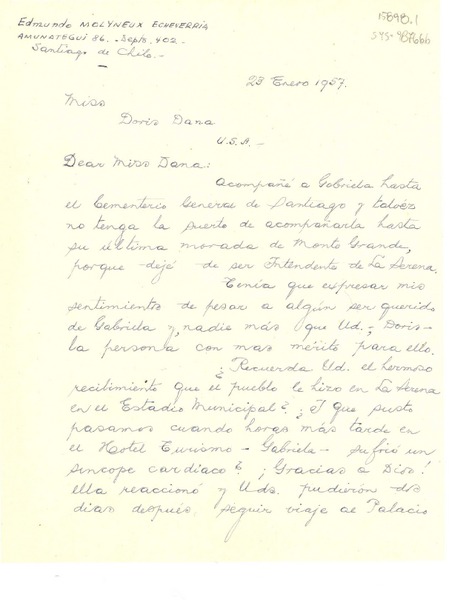 Edmundo MOLYNEUX ECHEVERRIA
AMUNATEGUI 86. - Depto. 402. -
Santiago de Chile. -
15898.1
23 Enero 1957.
Miss
Doris Dana
U.S.A. -
Dear Miss Dana:
Acompañé a Gabriela hasta
el Cementerio General de Santiago y talvez
no tenga la suerte de acompañarla hasta
su última morada de Monte Grande,
porque dejé de ser Intendente de La Serena.
Tenía que expresar mis
sentimientos de pesar a algún ser querido
de Gabriela y, nadie más que Ud. -, Doris -
la persona con mas mérito para ello.
¿Recuerda Ud. el hermoso
recibimiento que el pueblo le hizo en La Serena
en el Estadio Municipal?, ¿I que susto
pasamos cuando horas más tarde en
el Hotel Turismo - Gabriela - sufrió un
síncope cardíaco? ¡Gracias a Dios!
ella reaccionó y Uds. pudierón dos
días después seguir viaje al Palacio